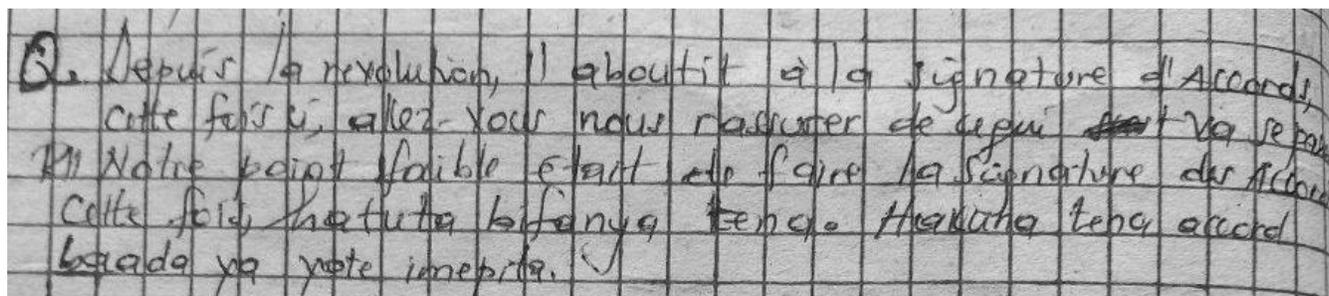 Q. Depuis la revolution, Il aboutit à la signature d'Accords,
cette fois ci, allez-vous nous rassurer de ce qui va se pas
R// Notre point faible était de faire la signature des Accor
Cette fois, hatuta bifanya tena. Hakuna tena accord
baada ya yote imepita.